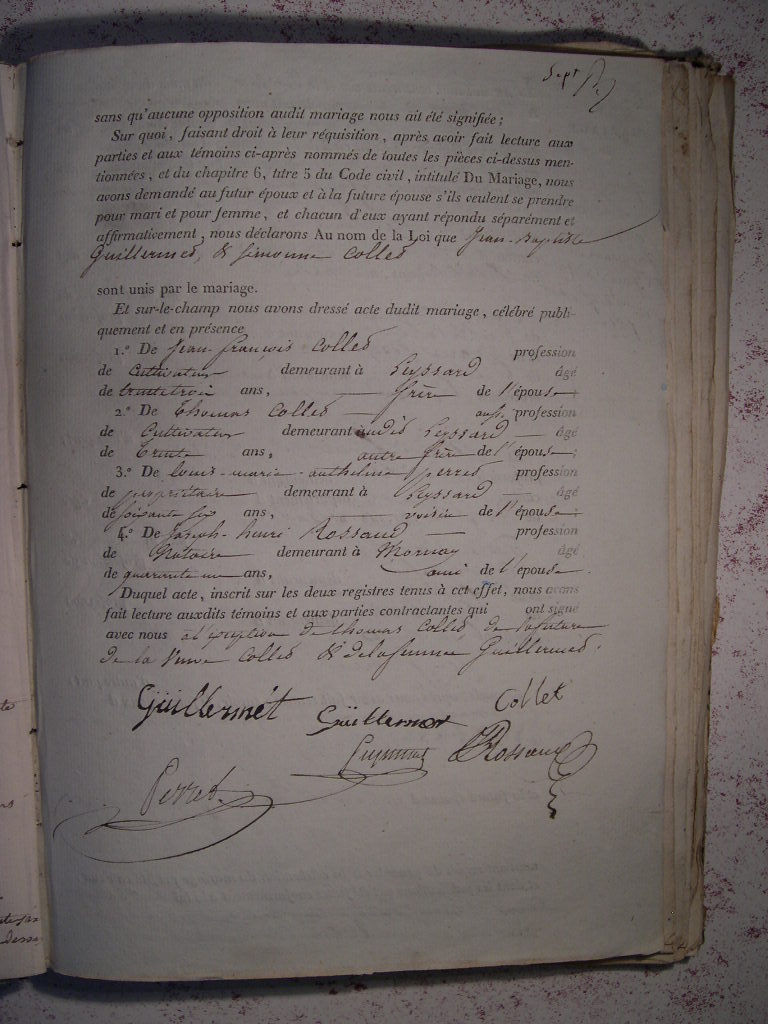 Sept
sans qu'aucune opposition audit mariage nous ait été signifiée ;
Sur quoi, faisant droit à leur réquisition, après avoir fait lecture aux
parties et aux témoins ci-après nommés de toutes les pièces ci-dessus men-
tionnées, et du chapitre 6, titre 5 du Code civil, intitulé Du Mariage, nous
avons demandé au futur époux et à la future épouse s'ils veulent se prendre
pour mari et pour femme, et chacun d'eux ayant répondu séparément et
affirmativement, nous déclarons Au nom de la Loi que Jean-Baptiste
Guillermet, & Simonne Collet
sont unis par le mariage.
Et sur-le-champ nous avons dressé acte dudit mariage, célébré publi-
quement et en présence
1.º De Jean-françois Collet profession
de Cultivateur demeurant à Leyssard âgé
de trentetrois ans, frère de l'épouse
2.º De Thomas Collet aussi profession
de Cultivateur demeurant audit Leyssard âgé
de Trente ans, autre frère de l'épouse ;
3.º De louis-marie-anthelme perret profession
de propriétaire demeurant à Leyssard âgé
de soixante six ans, voisin de l'épouse
4.º De Joseph-henri Rossand profession
de Notaire demeurant à Mornay âgé
de quarante un ans, ami de l'épouse.
Duquel acte, inscrit sur les deux registres tenus à cet effet, nous avons
fait lecture auxdits témoins et aux parties contractantes qui ont signé
avec nous à l'exception de thomas Collet de la future
de la Veuve Collet & de la femme Guillermet.
Guillermét Guillermet Collet
Rossand
Perret